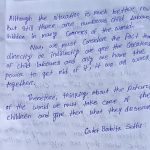 Although the situation is much better now
but still there are numerous child labours
hidden in many corners of the world.
Now we must consider the fact that
directly or indirectly we are the creators
of child labours and only we have the
power to get rid of it if we all work
together.
Therefore, thinking about the future
of the world we must take care of the
children and give them what they deserve.